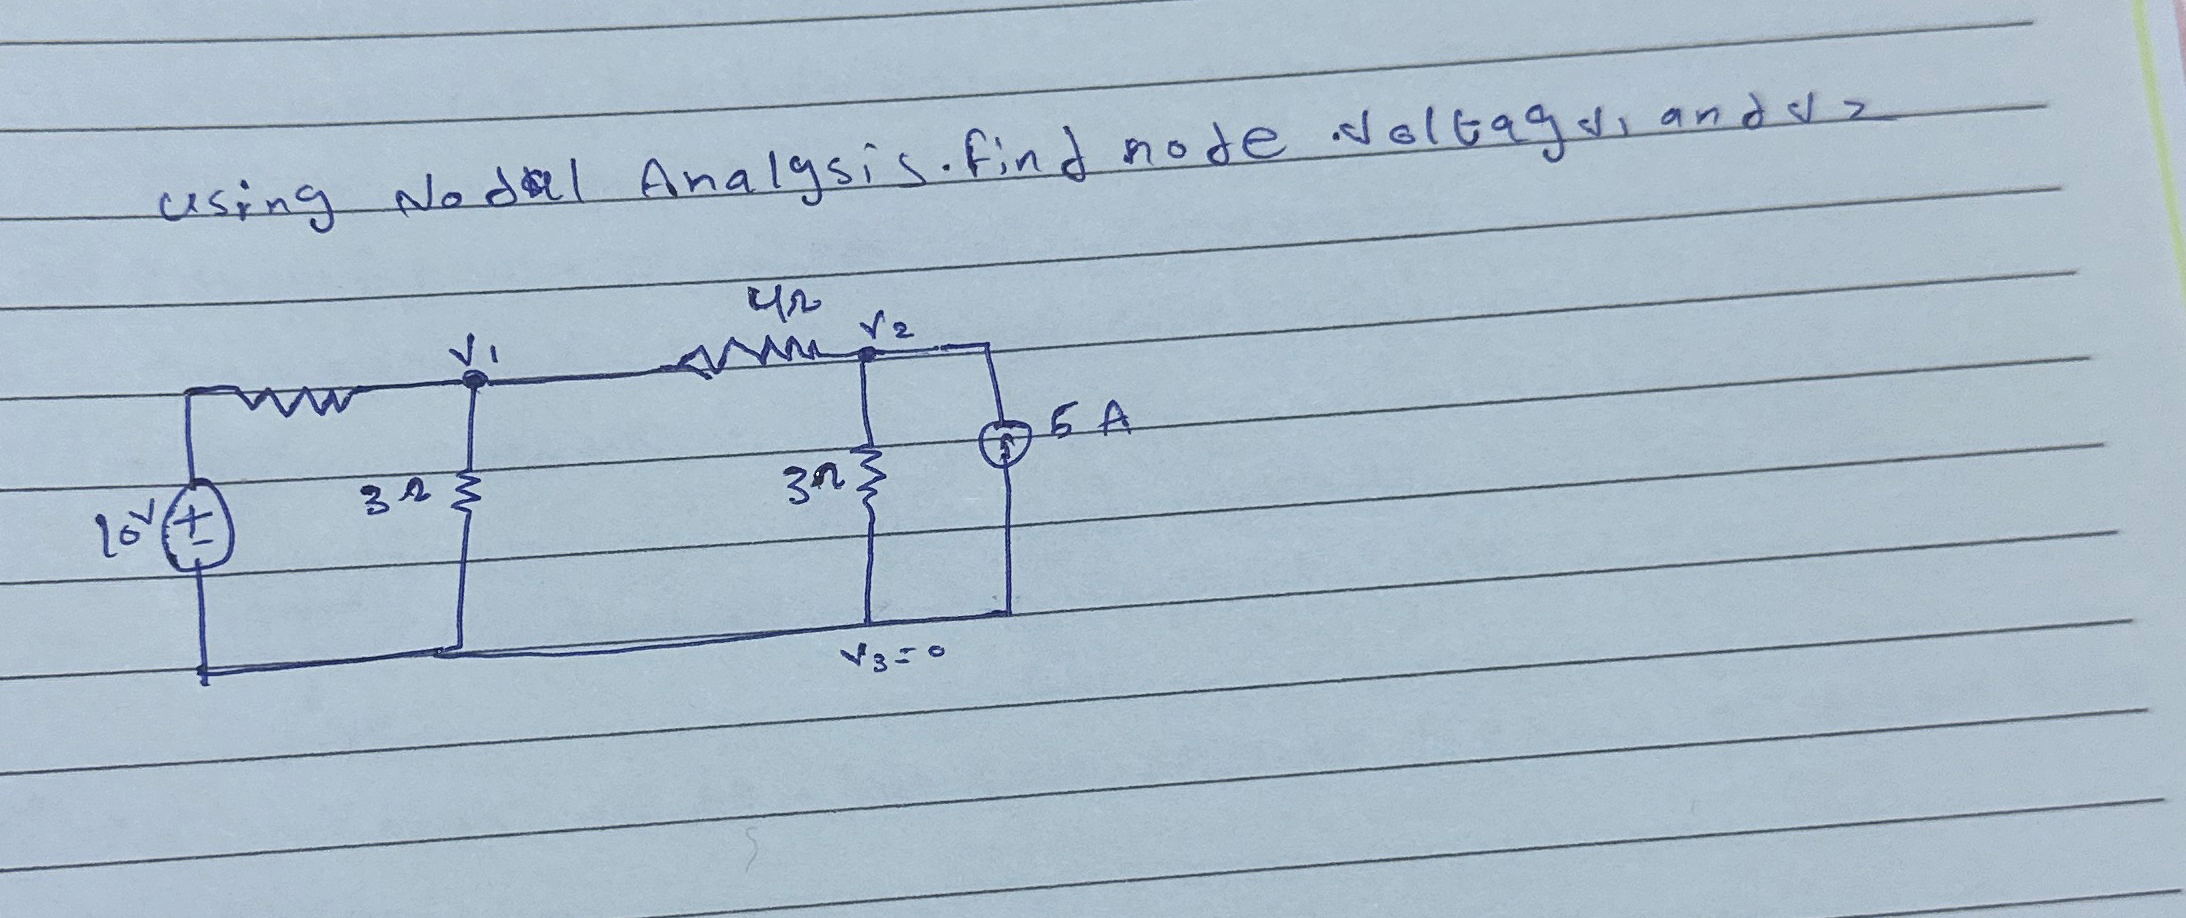 using Nodal Analysis. find node voltag v1 and v2
4Ω
V1
V2
10V
+
-
3Ω
3Ω
5 A
V3=0